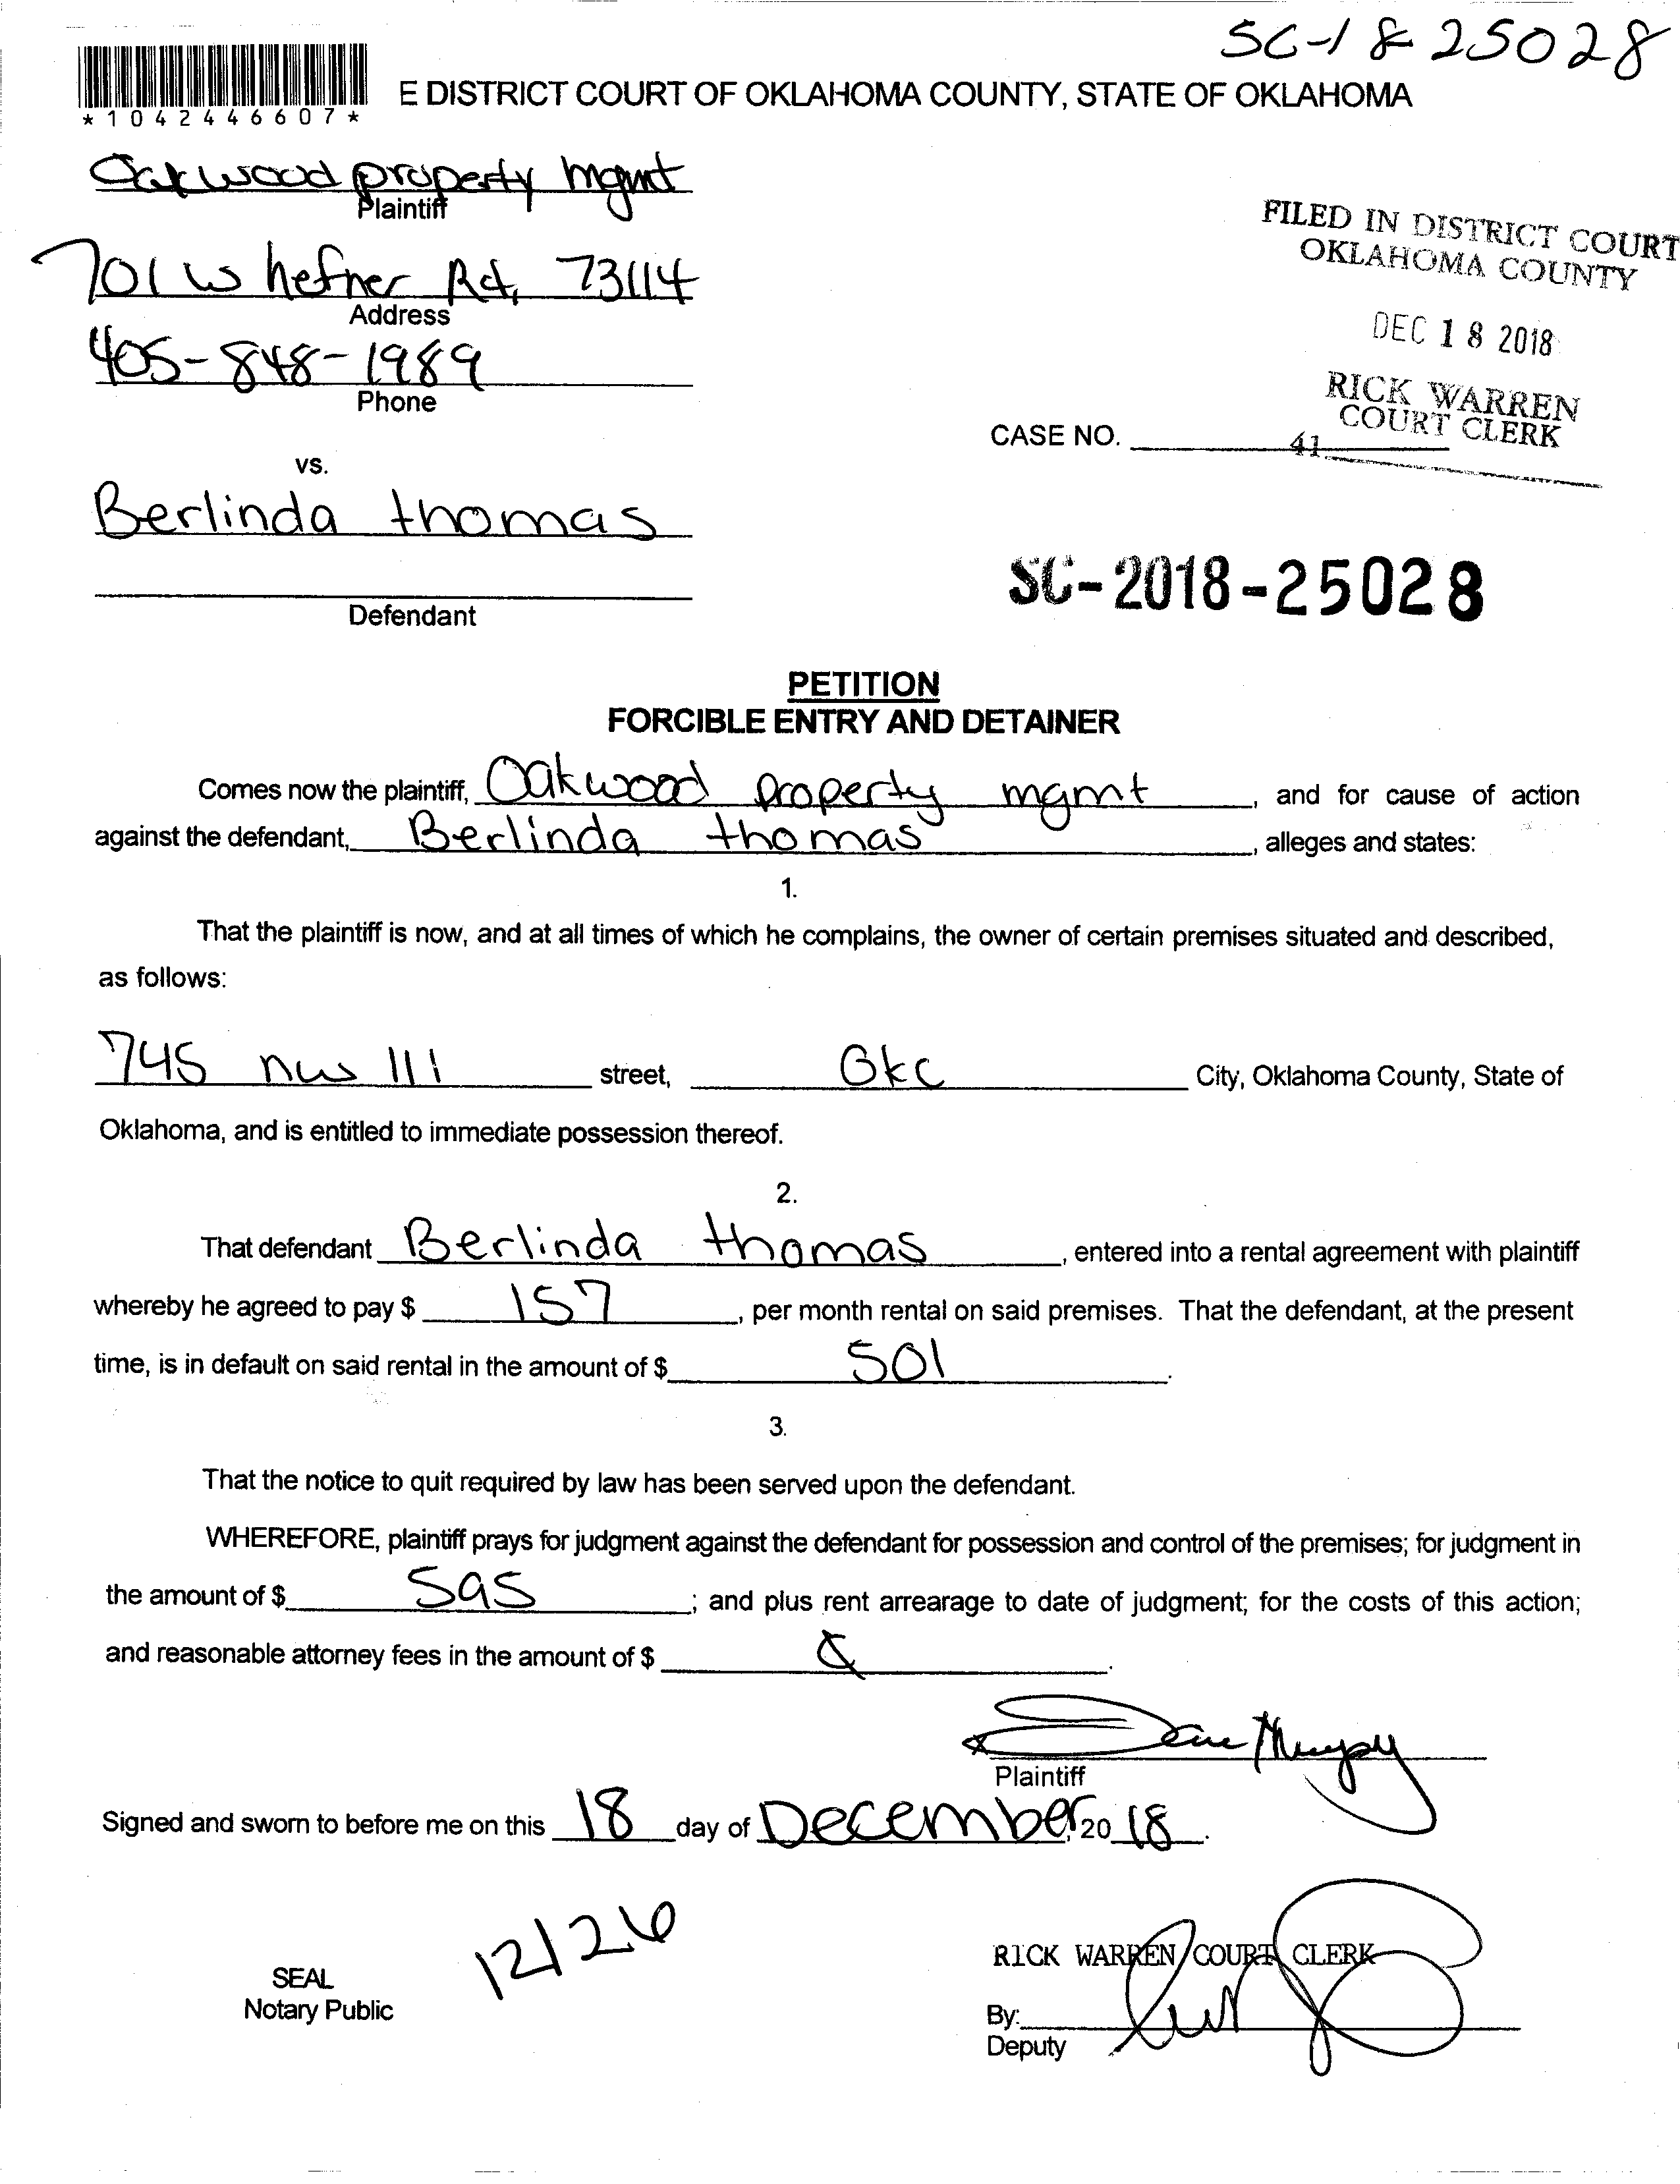 SC-18-25028
*1042446607*
E DISTRICT COURT OF OKLAHOMA COUNTY, STATE OF OKLAHOMA
Oakwood property mgmt
Plaintiff
701 W hefner Rd, 73114
Address
405-848-1989
Phone
FILED IN DISTRICT COURT
OKLAHOMA COUNTY
DEC 18 2018
RICK WARREN
COURT CLERK
CASE NO.
41
vs.
Berlinda thomas
Defendant
SC-2018-25028
PETITION
FORCIBLE ENTRY AND DETAINER
Comes now the plaintiff, Oakwood property mgmt, and for cause of action
against the defendant, Berlinda thomas, alleges and states:
1.
That the plaintiff is now, and at all times of which he complains, the owner of certain premises situated and described,
as follows:
745 nw 111 street, Okc City, Oklahoma County, State of
Oklahoma, and is entitled to immediate possession thereof.
2.
That defendant Berlinda thomas, entered into a rental agreement with plaintiff
whereby he agreed to pay $ 157, per month rental on said premises. That the defendant, at the present
time, is in default on said rental in the amount of $ 501.
3.
That the notice to quit required by law has been served upon the defendant.
WHEREFORE, plaintiff prays for judgment against the defendant for possession and control of the premises; for judgment in
the amount of $ 595; and plus rent arrearage to date of judgment; for the costs of this action;
and reasonable attorney fees in the amount of $ .
Plaintiff
Signed and sworn to before me on this 18 day of December, 20 18.
12/26
SEAL
Notary Public
RICK WARREN COURT CLERK
By:
Deputy